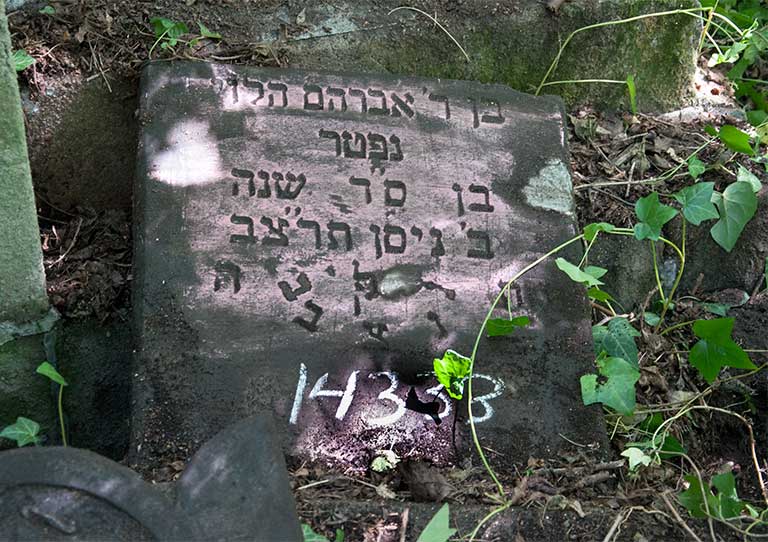 בן ר׳ אברהם הלוי
נפטר
בן ס״ד שנה
ב׳ ניסן תרצ״ב
14338